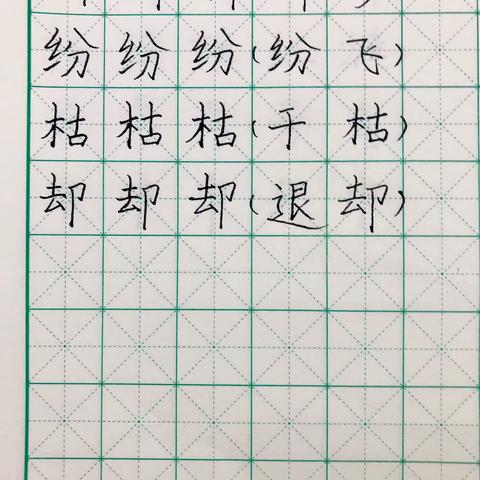 纷纷纷(纷飞)
枯枯枯(干枯)
却却却(退却)